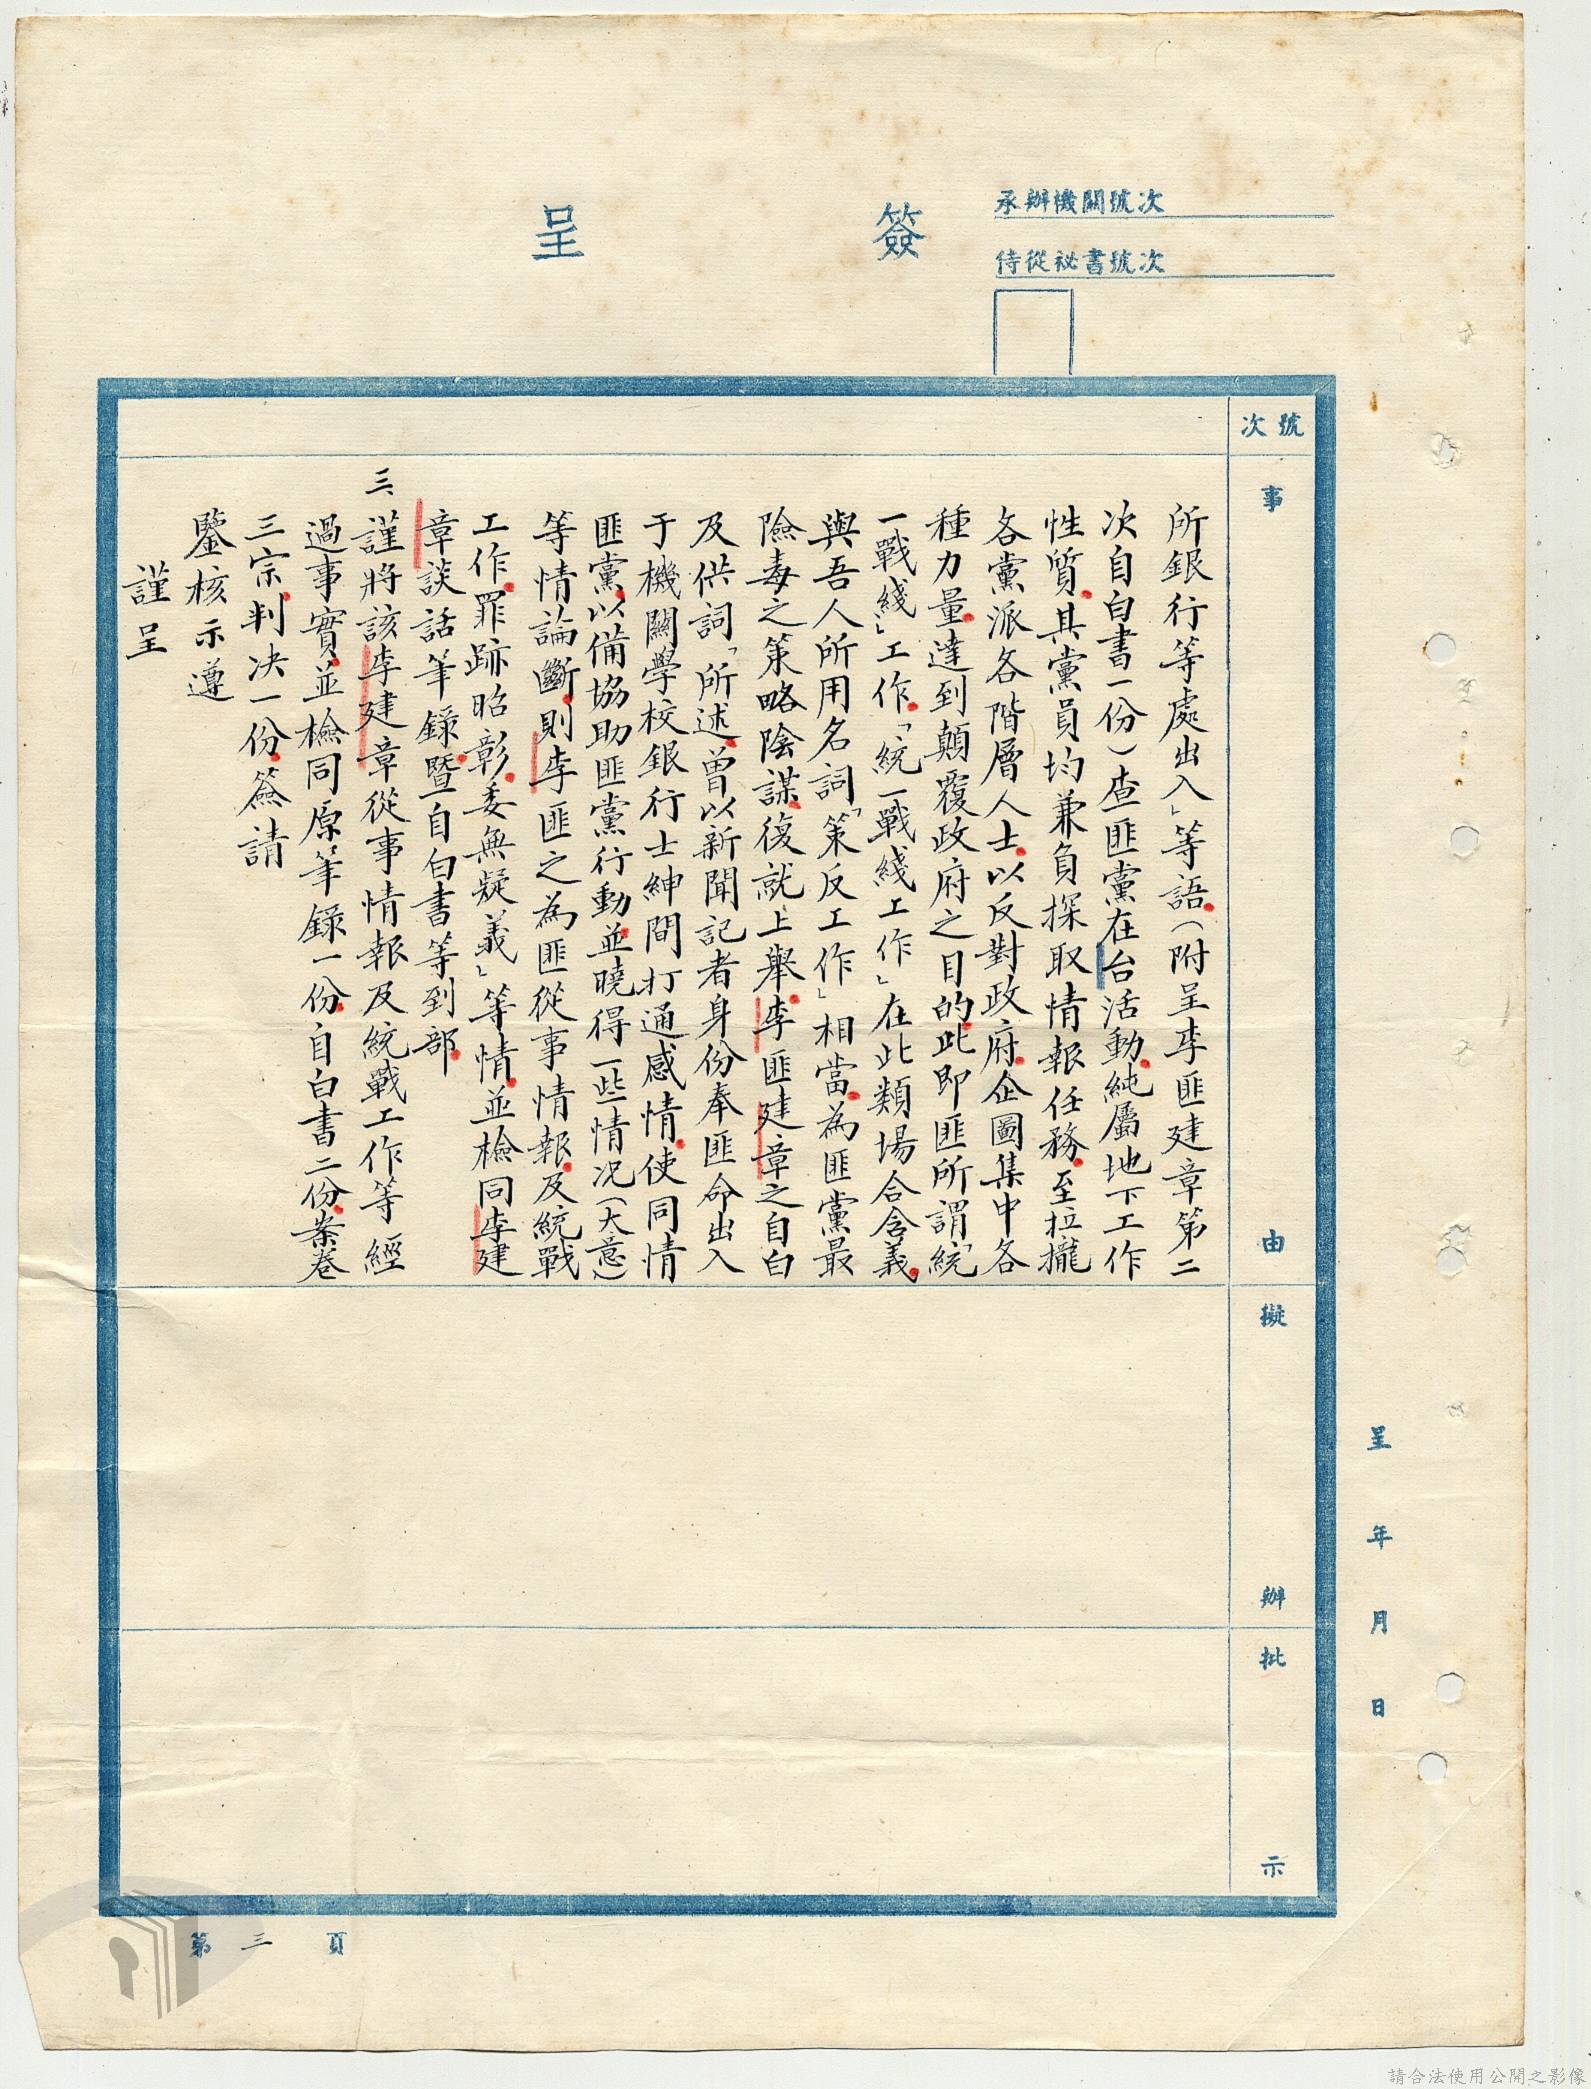 簽呈
承辦機關號次
侍從祕書號次
號次
事由
擬辦
批示
呈 年 月 日
所銀行等處出入」等語(附呈李匪建章第二
次自白書一份)查匪黨在台活動純屬地下工作
性質其黨員均兼負探取情報任務至拉攏
各黨派各階層人士以反對政府企圖集中各
種力量達到顛覆政府之目的此即匪所謂「統
一戰綫」工作「統一戰綫工作」在此類場合含義
與吾人所用名詞「策反工作」相當為匪黨最
險毒之策略陰謀復就上舉李匪建章之自白
及供詞「所述曾以新聞記者身份奉匪命出入
于機關學校銀行士紳間打通感情使同情
匪黨以備協助匪黨行動並曉得一些情況(大意)
等情論斷則李匪之為匪從事情報及統戰
工作罪跡昭彰委無疑義」等情並檢同李建
章談話筆錄暨自白書等到部
三、謹將該李建章從事情報及統戰工作等經
過事實並檢同原筆錄一份自白書二份案卷
三宗判決一份簽請
鑒核示遵
謹呈
第三頁
請合法使用公開之影像